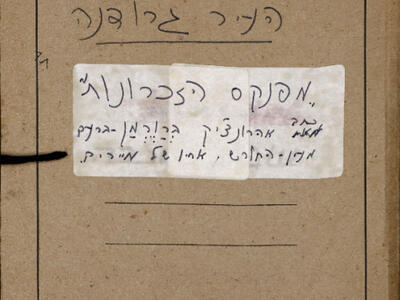 העיר גרודנה
"מפנקס הזכרונות"
כתב אהרונצ'יק בְּרֶוֶרְמַן-ברעם
מעין-החורש, אחיו של מיירים.